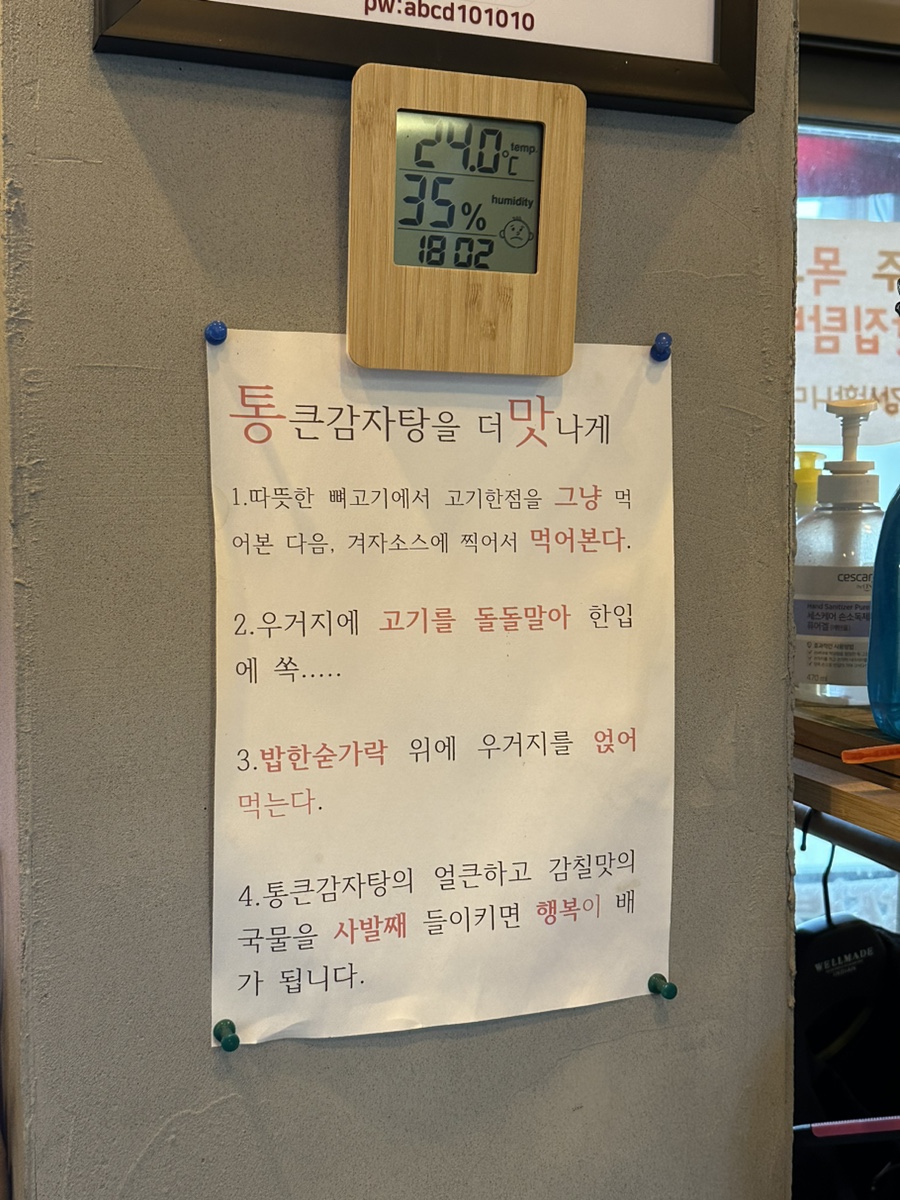 pw:abcd101010
24.0°C temp
35% humidity
18 02
통큰감자탕을 더 맛나게
1.따뜻한 뼈고기에서 고기한점을 그냥 먹
어본 다음, 겨자소스에 찍어서 먹어본다.
2.우거지에 고기를 돌돌말아 한입
에 쏙.....
3.밥한숟가락 위에 우거지를 얹어
먹는다.
4.통큰감자탕의 얼큰하고 감칠맛의
국물을 사발째 들이키면 행복이 배
가 됩니다.
목
집탐
cescar
Hand Sanitizer Pure
세스케어 손소독제
퓨어겔
470 ml
WELLMADE